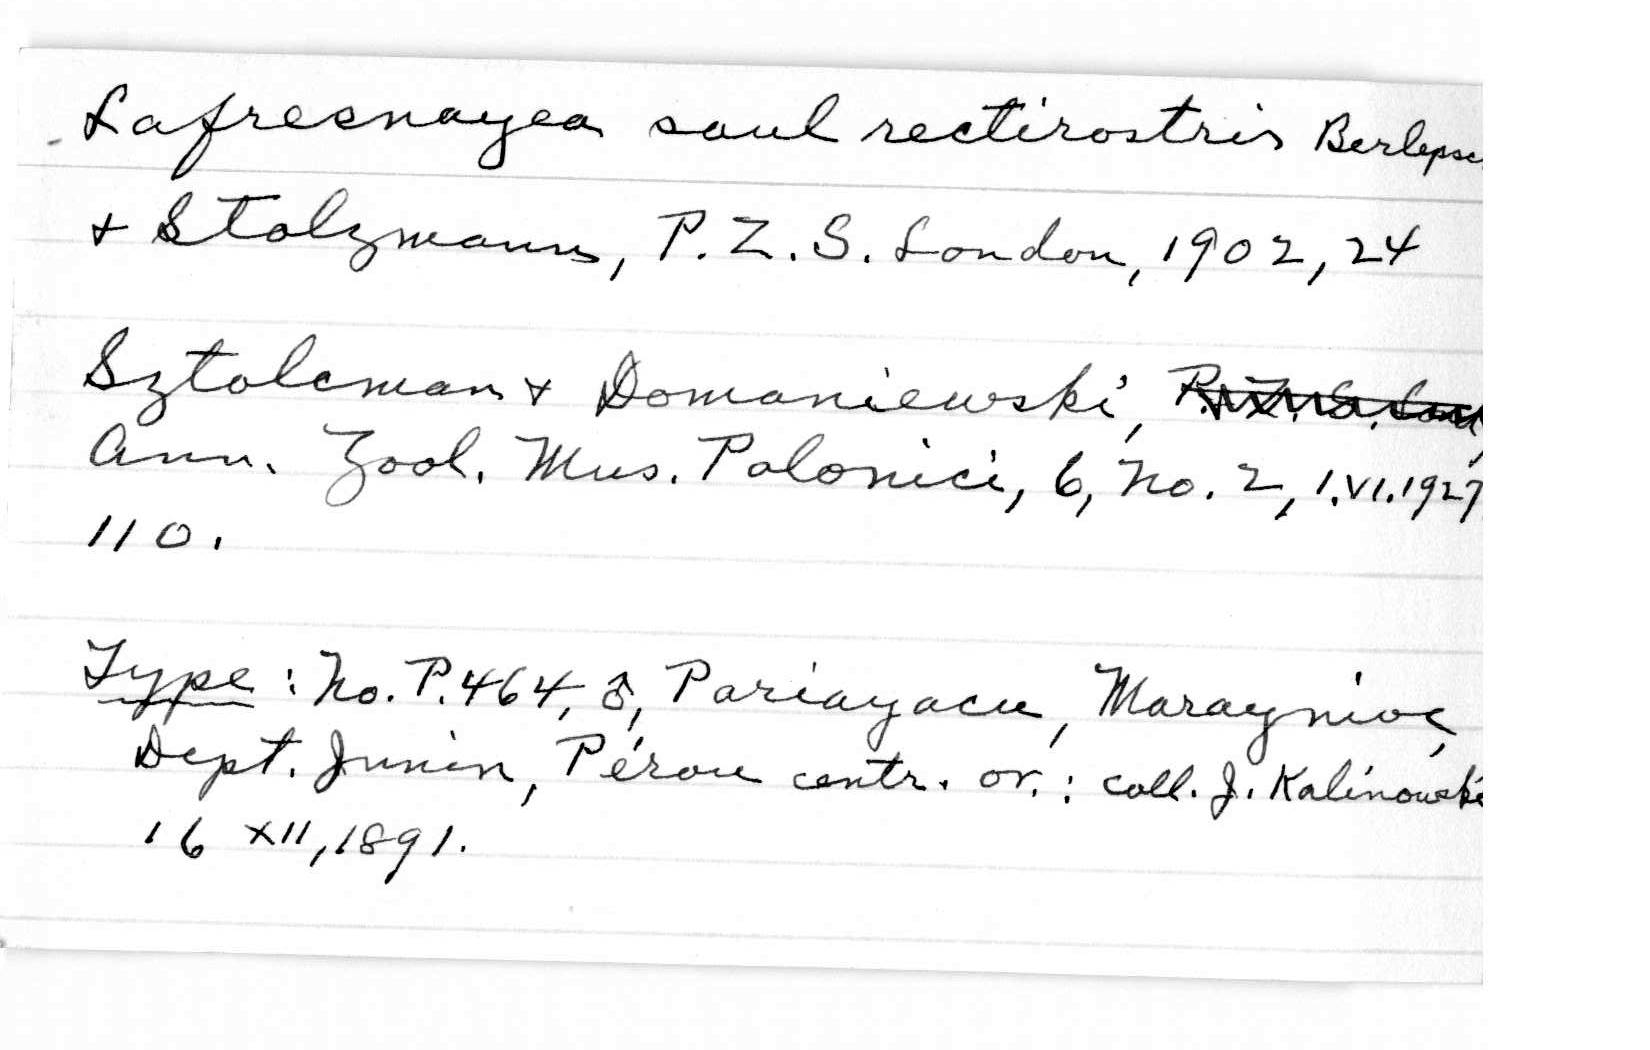 Lafresnayea saul rectirostris Berlepsc
+ Stolzmann, P. Z. S. London, 1902, 24
Sztolcman + Domaniewski, P. Z. S. Lond,
Ann. Zool. Mus. Polonici, 6, No. 2, 1.VI.1927
110.
Type: No. P.464, ♂, Pariayacu, Maraynioc,
Dept. Junin, Pérou centr. or.: coll. J. Kalinowski
16 XII, 1891.